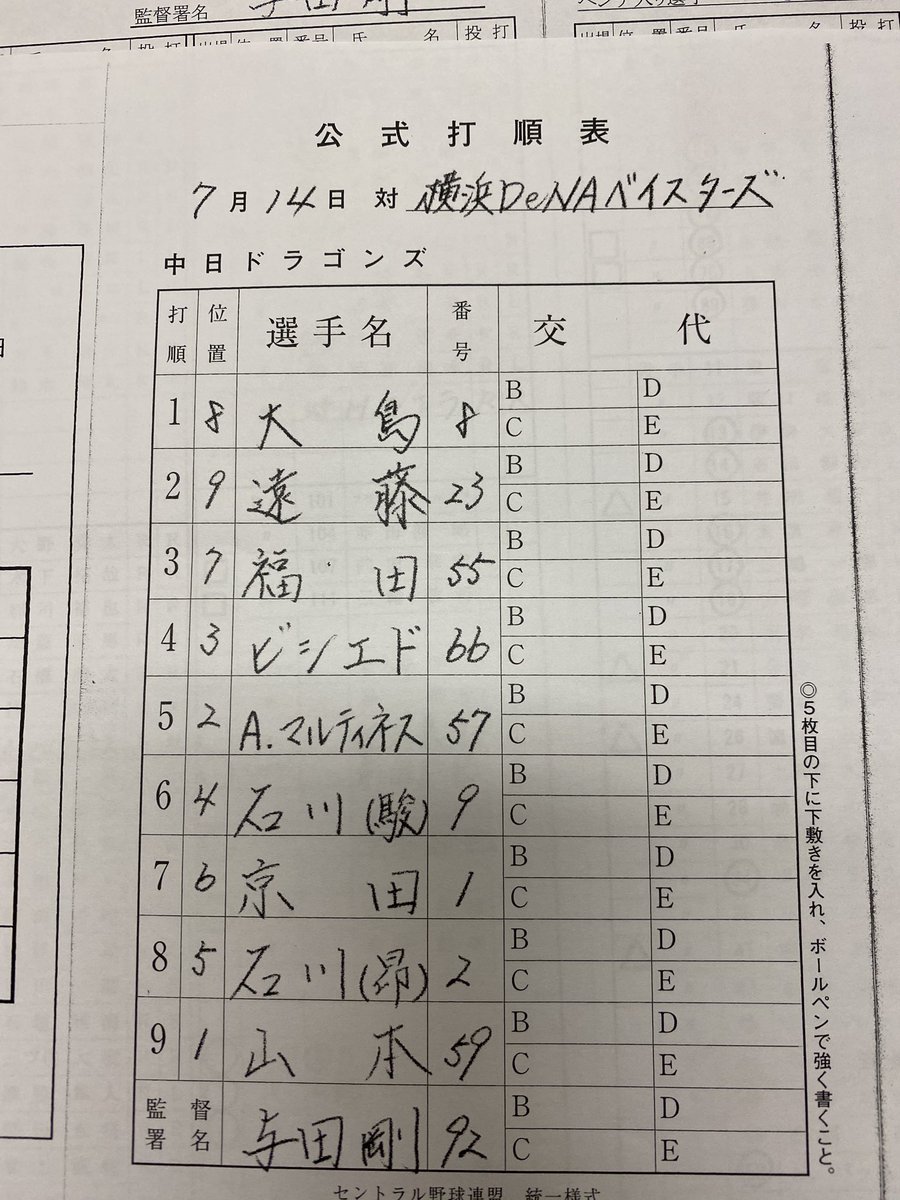 監督署名 与田剛
名 投打 出場 位置 番号 氏 名 投打
公式打順表
7月14日 対 横浜DeNAベイスターズ
中日ドラゴンズ
打順 位置 選手名 番号 交代
1 8 大島 8 B D
C E
2 9 遠藤 23 B D
C E
3 7 福田 55 B D
C E
4 3 ビシエド 66 B D
C E
5 2 A.マルティネス 57 B D
C E
6 4 石川(駿) 9 B D
C E
7 6 京田 1 B D
C E
8 5 石川(昂) 2 B D
C E
9 1 山本 59 B D
C E
監督署名 与田剛 92 B D
C E
◎5枚目の下に下敷きを入れ、ボールペンで強く書くこと。
セントラル野球連盟 統一様式